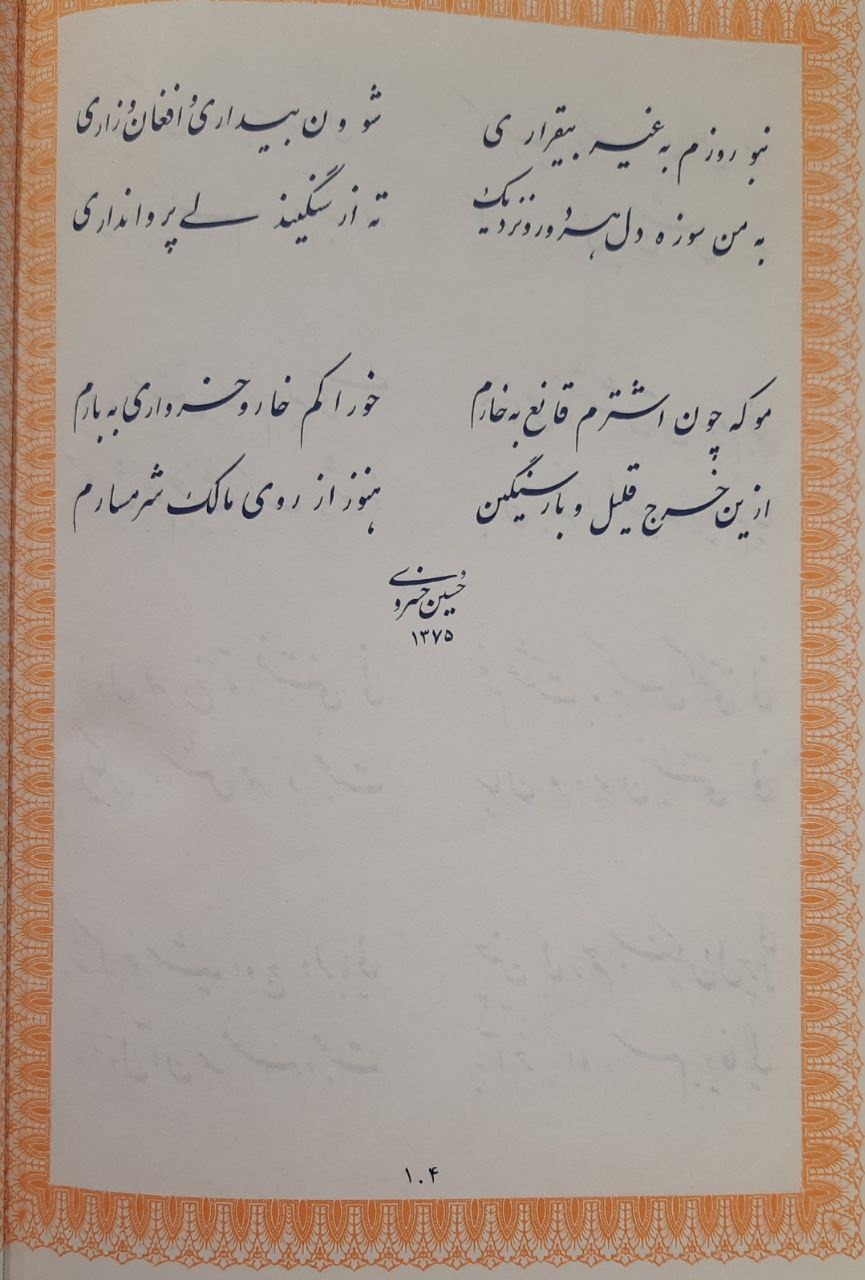 نبو روزم به غیر بیقراری شو و ن بیداری و افغان و زاری
به من سوزه دل هر دور و نزدیک ته از سنگیندلی پروا نداری
مو که چون اشترم قانع به خارم خوراکم خار و خرواری به بارم
ازین خرج قلیل و بار سنگین هنوز از روی مالک شرمسارم
حسین خسروی
۱۳۷۵
۱۰۴